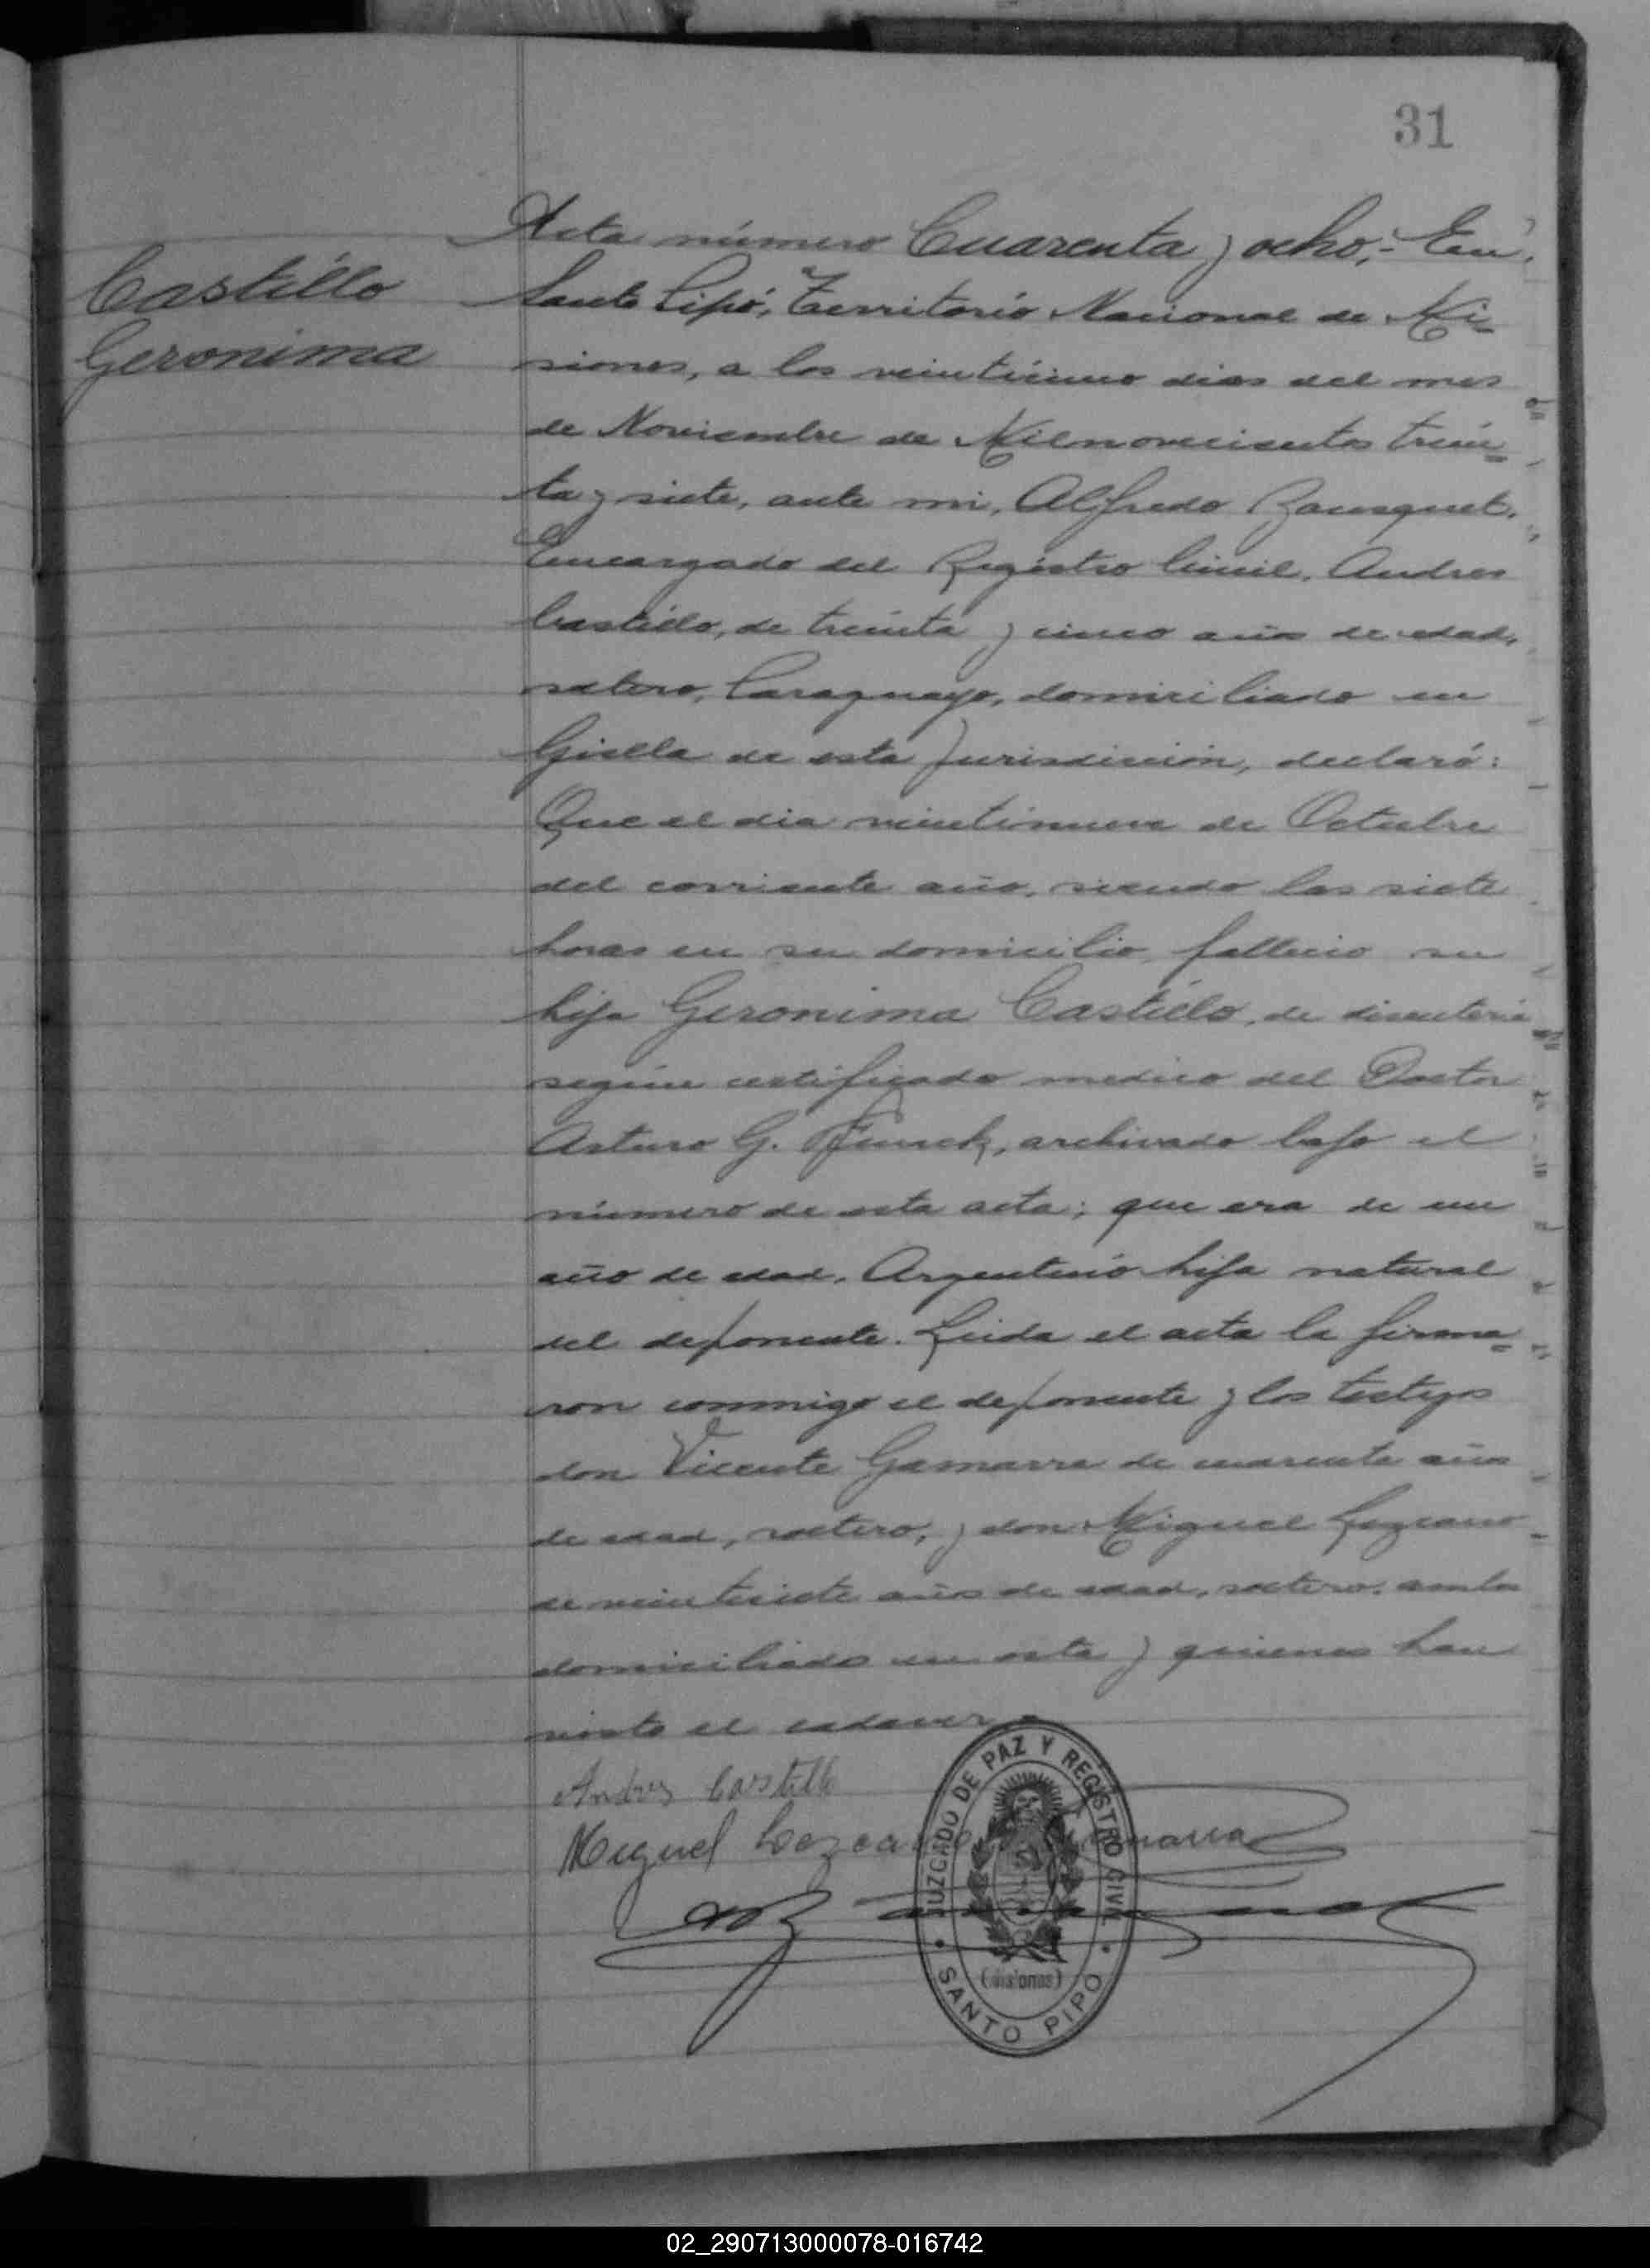 31
Castillo
Geronima
Acta número Cuarenta y ocho.- En
Santo Pipó, Territorio Nacional de Mi=
siones, a los veinticinco dias del mes
de Noviembre de Milnovecientos trein=
ta y siete, ante mi, Alfredo Bousquet,
Encargado del Registro Civil, Andres
Castillo, de treinta y cinco años de edad,
soltero, Paraguayo, domiciliado en
Gisella de esta Jurisdicción, declaró:
Que el dia veintinueve de Octubre
del corriente año, siendo las siete
horas en su domicilio, fallecio su
hija Geronima Castillo, de disenteria
según certificado medico del Doctor
Arturo G. Funck, archivado bajo el
número de esta acta; que era de un
año de edad, Argentino hija natural
del deponente. Leida el acta la firma=
ron conmigo el deponente y los testigos
don Vicente Gamarra de cuarenta años
de edad, soltero, y don Miguel Lezcano
de veintisiete años de edad, soltero, ambos
domiciliado en esta y quienes han
visto el cadaver
Andres Castillo
Miguel Lezcano
JUZGADO DE PAZ Y REGISTRO CIVIL
(Misiones)
SANTO PIPÓ
02_290713000078-016742